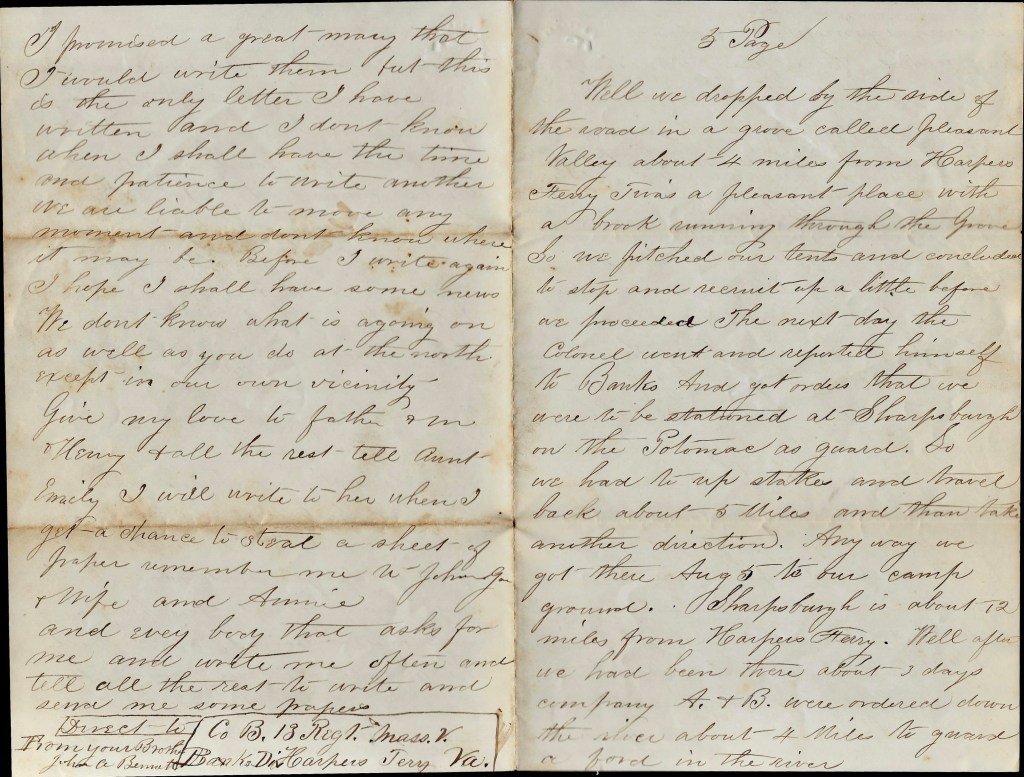 I promised a great many that
I would write them but this
is the only letter I have
written and I dont know
when I shall have the time
and patience to write another
we are liable to move any
moment and dont know where
it may be. Before I write again
I hope I shall have some news
We dont know what is agoing on
as well as you do at the north
except in our own vicinity
Give my love to father & m
& Henry & all the rest tell Aunt
Emily I will write to her when I
get a chance to steal a sheet of
paper remember me to John
& Wife and Annie
and evey body that asks for
me and write me often and
tell all the rest to write and
send me some papers
Direct to
From your Brother
John A Bennett
Co B. 13 Regt. Mass. V.
Banks Div Harpers Ferry Va.
5 Page
Well we dropped by the side of
the road in a grove called pleasant
Valley about 4 miles from Harpers
Ferry Twas a pleasant place with
a brook running through the Grove
So we pitched our tents and concluded
to stop and recruit up a little before
we proceeded The next day the
Colonel went and reported himself
to Banks And got orders that we
were to be stationed at Sharpsburgh
on the Potomac as guard. So
we had to up stakes and travel
back about 5 Miles and than take
another direction. Any way we
got there Aug 5 to our camp
ground. Sharpsburgh is about 12
miles from Harpers Ferry. Well after
we had been there about 3 days
company A. & B. were ordered down
the river about 4 Miles to guard
a ford in the river